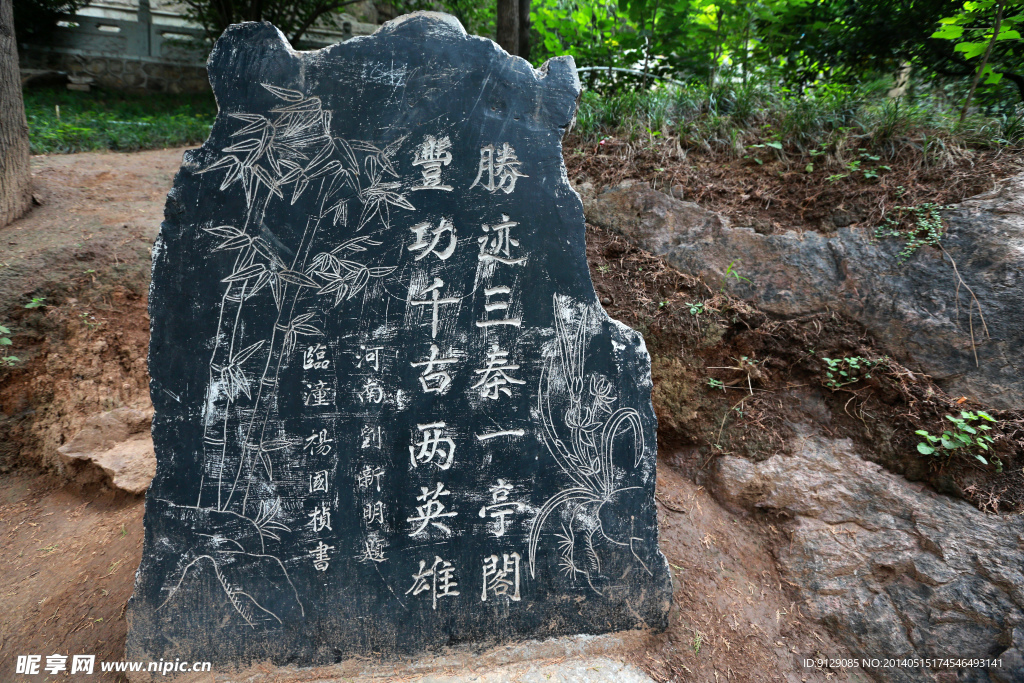 勝迹三秦一亭閣
豐功千古两英雄
河南劉新明題
臨潼楊國楨書
昵享网 www.nipic.cn
ID:9129085 NO:20140515174546493141